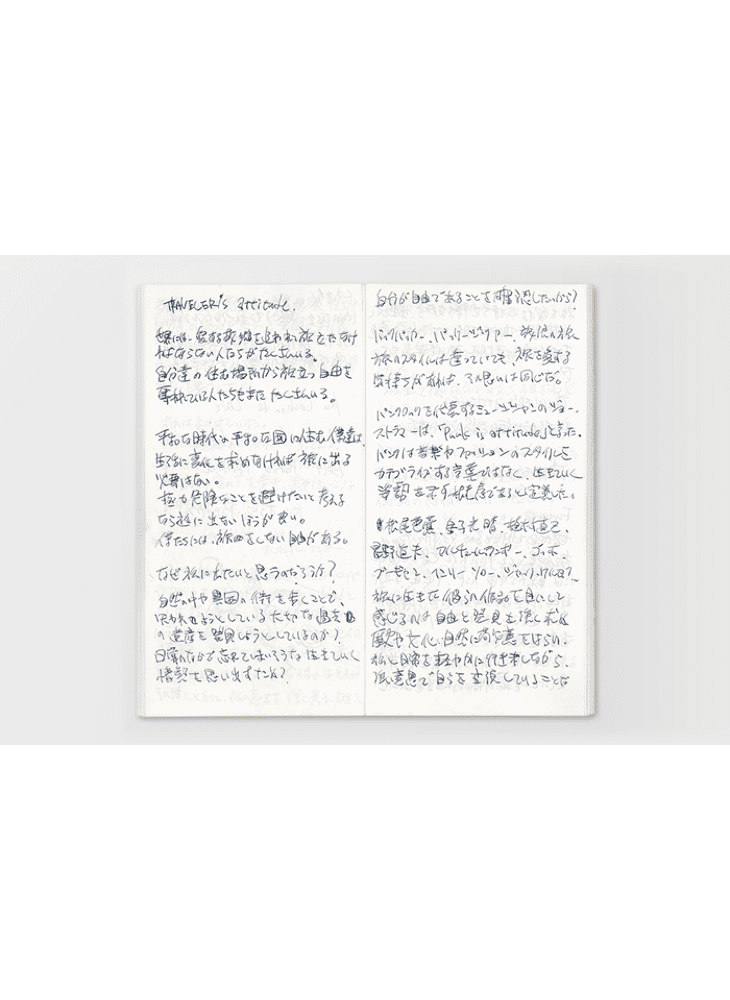 TRAVELER's attitude.
世界には、安住の故郷を追われ旅立たなけ
ればならない人たちがたくさんいる。
自分達の住む場所から旅立つ自由を
奪われている人たちもまたたくさんいる。
平和な時代の平和な国に住む僕達は、
生活に変化を求めなければ旅に出る
必要はない。
極力危険なことを避けたいと考える
なら旅に出ないほうが良い。
僕たちには、旅をしない自由がある。
なぜ旅に出たいと思うのだろうか?
自然の中や異国の街を歩くことで、
失われようとしている大切な過去
の遺産を発見しようとしているのか?
日常のなかで忘れてしまいそうな生きていく
を思い出すため?
自分が自由であることを確認したいから?
バックパッカー、バッケージツアー、放浪の旅
旅のスタイルは違っていても、旅を愛する
気持ちがあれば、その思いは同じだ。
パンクロックを代表するミュージシャンのジョー・
ストラマーは、「Punk is attitude」と言った。
パンクは音楽やファッションのスタイルを
カテゴライズする言葉ではなく、生きていく
姿勢を示す根底であると定義した。
松尾芭蕉、金子光晴、植村直己、
星野道夫、ブルースチャトウィン、ゴッホ、
ゴーギャン、ヘンリー・ソロー、ジャック・ケルアック、
旅に生きた彼らの作品を目にして
感じるのは自由と発見を強く求め
歴史や文化、自然に敬意をはらい、
旅と日常を軽やかに行き来しながら、
強い意思で自らを変優していることだ